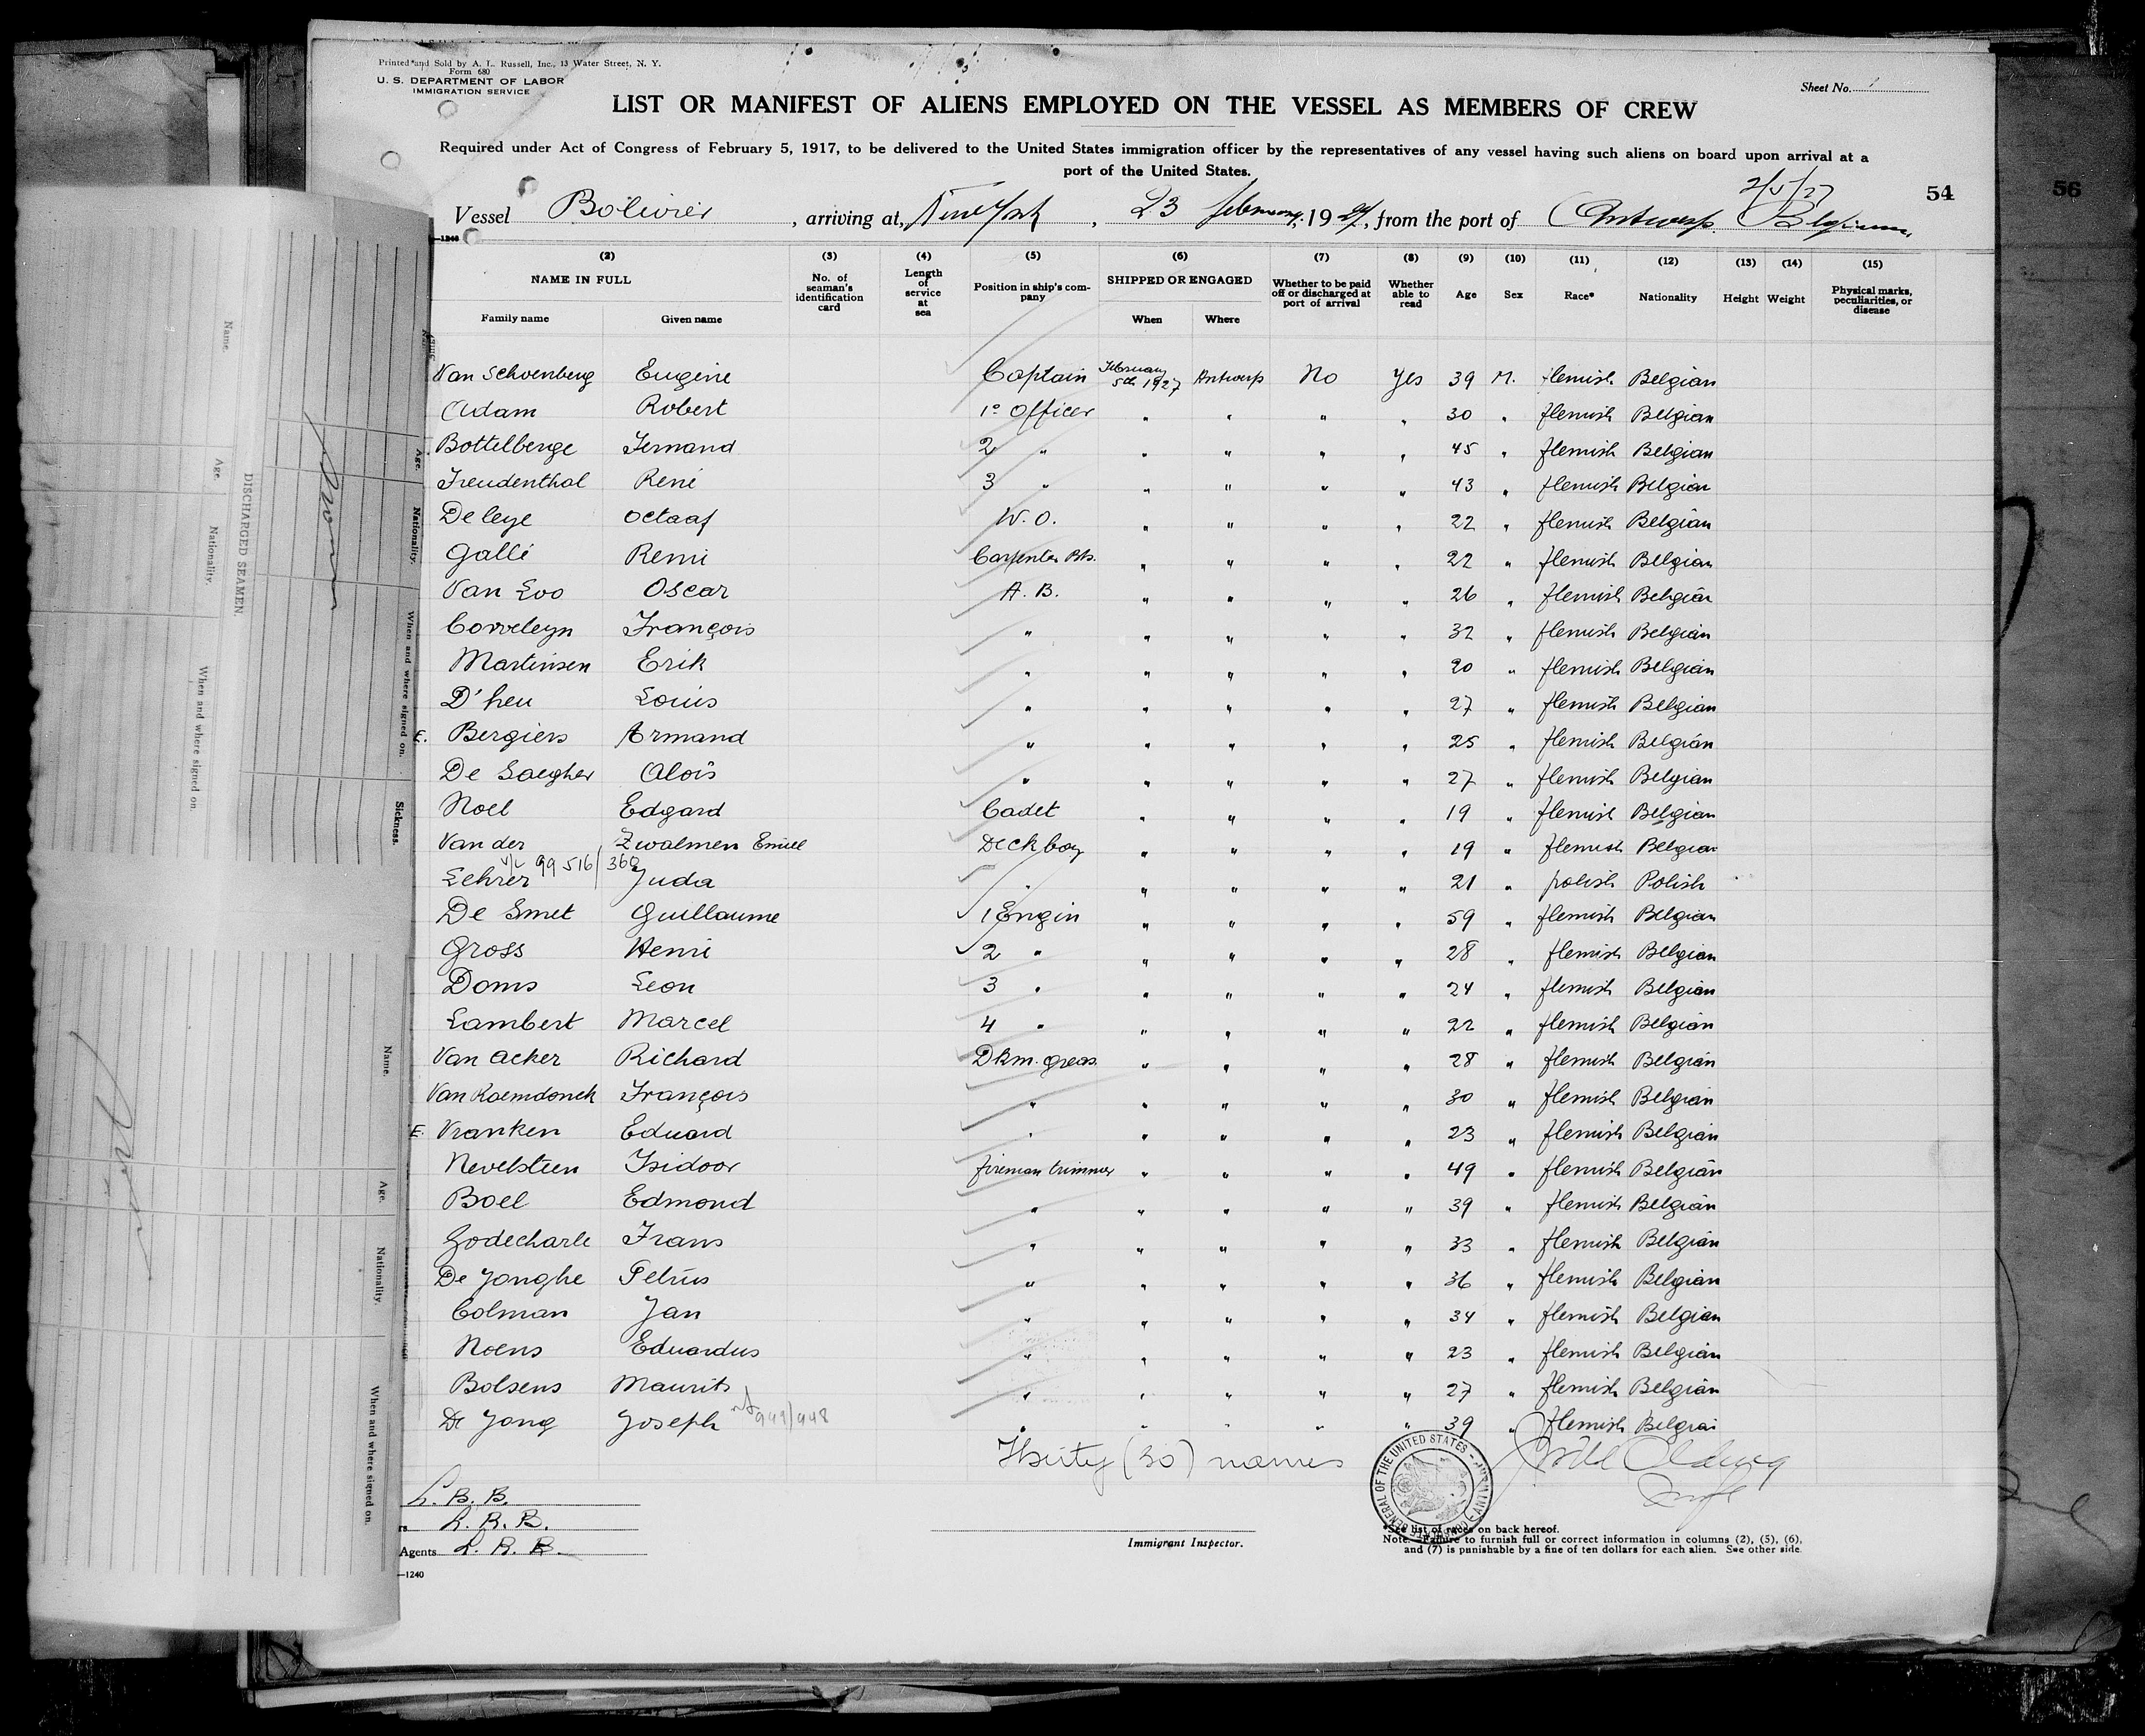 Printed and Sold by A. L. Russell, Inc., 13 Water Street, N. Y.
Form 680
U. S. DEPARTMENT OF LABOR
IMMIGRATION SERVICE
Sheet No.
LIST OR MANIFEST OF ALIENS EMPLOYED ON THE VESSEL AS MEMBERS OF CREW
Required under Act of Congress of February 5, 1917, to be delivered to the United States immigration officer by the representatives of any vessel having such aliens on board upon arrival at a
port of the United States.
54
56
Vessel Bolivier, arriving at, New York, 23 february, 1927, from the port of Antwerp. Belgium.
—1240
(2) (3) (4) (5) (6) (7) (8) (9) (10) (11) (12) (13) (14) (15)
NAME IN FULL No. of seaman's identification card Length of service at sea Position in ship's company SHIPPED OR ENGAGED Whether to be paid off or discharged at port of arrival Whether able to read Age Sex Race* Nationality Height Weight Physical marks, peculiarities, or disease
Family name Given name When Where
Van Schoenberg Eugène Captain February 5th 1927 Antwerp No Yes 39 M. flemish Belgian
Adam Robert 1° Officer " " " " 30 " flemish Belgian
Bottelberge Fernand 2 " " " " " 45 " flemish Belgian
Freudenthal René 3 " " " " " 43 " flemish Belgian
De leye Octaaf W. O. " " " " 22 " flemish Belgian
Gallé Remi Carpenter Bts. " " " " 22 " flemish Belgian
Van Loo Oscar A. B. " " " " 26 " flemish Belgian
Corveleyn François " " " " " 32 " flemish Belgian
Martinsen Erik " " " " " 20 " flemish Belgian
D'heu Louis " " " " " 27 " flemish Belgian
E. Bergiers Armand " " " " " 25 " flemish Belgian
De Saegher Aloïs " " " " " 27 " flemish Belgian
Noel Edgard Cadet " " " " 19 " flemish Belgian
Van der Zwalmen Emiel Deckboy " " " " 19 " flemish Belgian
99516/360
Lehrer Juda " " " " " 21 " polish Polish
De Smet Guillaume 1 Engin " " " " 59 " flemish Belgian
Gross Henri 2 " " " " " 28 " flemish Belgian
Doms Leon 3 " " " " " 24 " flemish Belgian
Lambert Marcel 4 " " " " " 22 " flemish Belgian
Van Acker Richard Dkm. greas. " " " " 28 " flemish Belgian
Van Raemdonck François " " " " " 30 " flemish Belgian
E. Vranken Eduard " " " " " 23 " flemish Belgian
Nevelsteen Isidoor fireman trimmer " " " " 49 " flemish Belgian
Boel Edmond " " " " " 39 " flemish Belgian
Godecharle Frans " " " " " 33 " flemish Belgian
De Jonghe Petrus " " " " " 36 " flemish Belgian
Colman Jan " " " " " 34 " flemish Belgian
Noens Eduardus " " " " " 23 " flemish Belgian
Bolsens Maurits " " " " " 27 " flemish Belgian
De Jong Joseph " " " " " 39 " flemish Belgian
Thirty (30) names
L. B. B.
L. R. B.
Agents L. R. B.
—1240
Immigrant Inspector.
*See list of races on back hereof.
Note.—Failure to furnish full or correct information in columns (2), (5), (6),
and (7) is punishable by a fine of ten dollars for each alien. See other side.
DISCHARGED SEAMEN.
Name. Age. Nationality. When and where signed on.
Age. Nationality. When and where signed on. Sickness.
Name. Age. Nationality. When and where signed on.